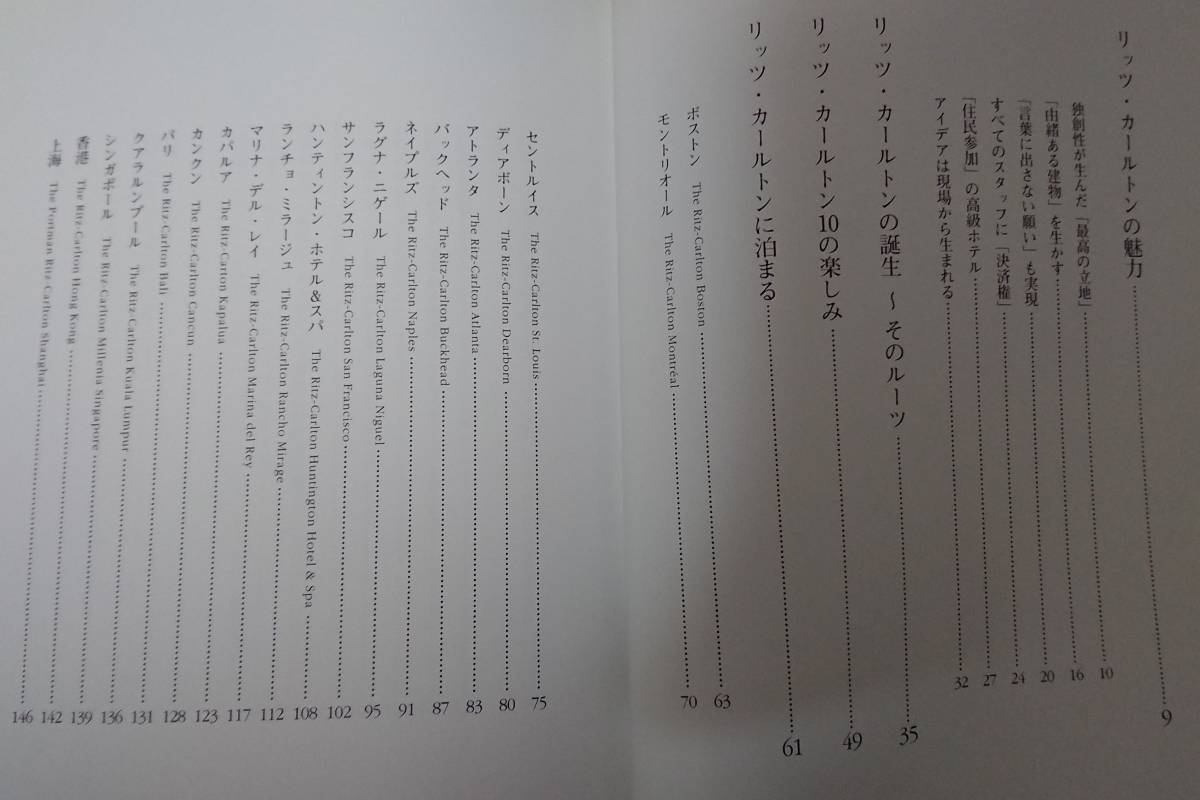 リッツ・カールトンの魅力 9
独創性が生んだ「最高の立地」 10
「由緒ある建物」を生かす 16
「言葉に出さない願い」も実現 20
すべてのスタッフに「決済権」 24
「住民参加」の高級ホテル 27
アイデアは現場から生まれる 32
リッツ・カールトンの誕生 〜 そのルーツ 35
リッツ・カールトン10の楽しみ 49
リッツ・カールトンに泊まる 61
ボストン The Ritz-Carlton Boston 63
モントリオール The Ritz-Carlton Montréal 70
セントルイス The Ritz-Carlton St. Louis 75
ディアボーン The Ritz-Carlton Dearborn 80
アトランタ The Ritz-Carlton Atlanta 83
バックヘッド The Ritz-Carlton Buckhead 87
ネイプルズ The Ritz-Carlton Naples 91
ラグナ・ニゲール The Ritz-Carlton Laguna Niguel 95
サンフランシスコ The Ritz-Carlton San Francisco 102
ハンティントン・ホテル＆スパ The Ritz-Carlton Huntington Hotel & Spa 108
ランチョ・ミラージュ The Ritz-Carlton Rancho Mirage 112
マリナ・デル・レイ The Ritz-Carlton Marina del Rey 117
カパルア The Ritz-Carton Kapalua 123
カンクン The Ritz-Carlton Cancun 128
バリ The Ritz-Carlton Bali 131
クアラルンプール The Ritz-Carlton Kuala Lumpur 136
シンガポール The Ritz-Carlton Millenia Singapore 139
香港 The Ritz-Carlton Hong Kong 142
上海 The Portman Ritz-Carlton Shanghai 146